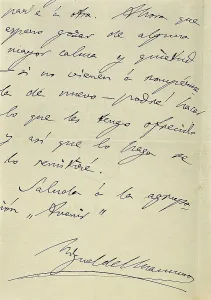 parte á otra. Ahora que
espero gozar de alguna
mayor calma y quietud
—si no vienen á rompérme
la de nuevo— podré hacer
lo que les tengo ofrecido
y así que lo haga se
lo remitiré.
Saluda á la agrupa-
ción "Avenir"
Miguel de Unamuno